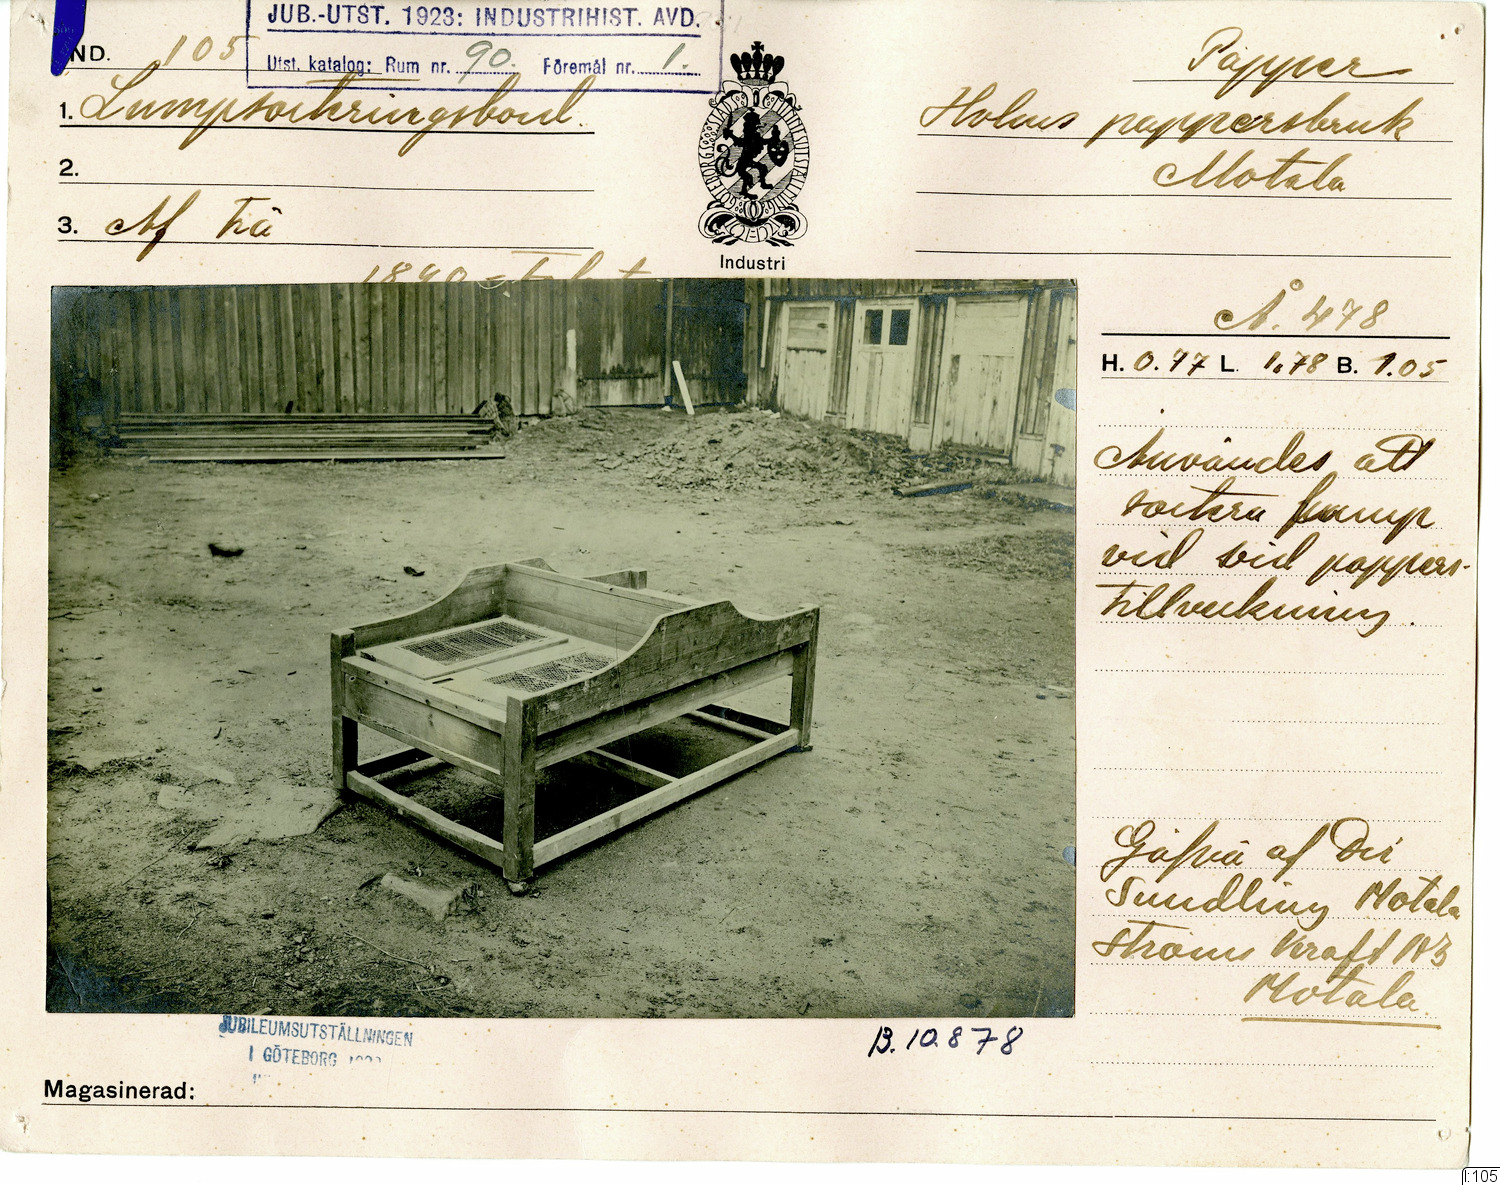 JUB.-UTST. 1923: INDUSTRIHIST. AVD.
Utst. katalog: Rum nr. 90. Föremål nr. 1.
IND. 105
1. Lumpsorteringsbord.
2.
3. Af trä
GÖTEBORGS STADS MINNESUTSTÄLLNING
Industri
Papper
Holms pappersbruk
Motala
Å. 478
H. 0.77 L. 1,78 B. 1.05
Användes att
sortera lump
vid vid pappers-
tillverkning.
Gåfva af Dir
Sundling Motala
Ströms Kraft N3
Motala.
JUBILEUMSUTSTÄLLNINGEN
I GÖTEBORG 1923
B.10.878
Magasinerad:
I:105